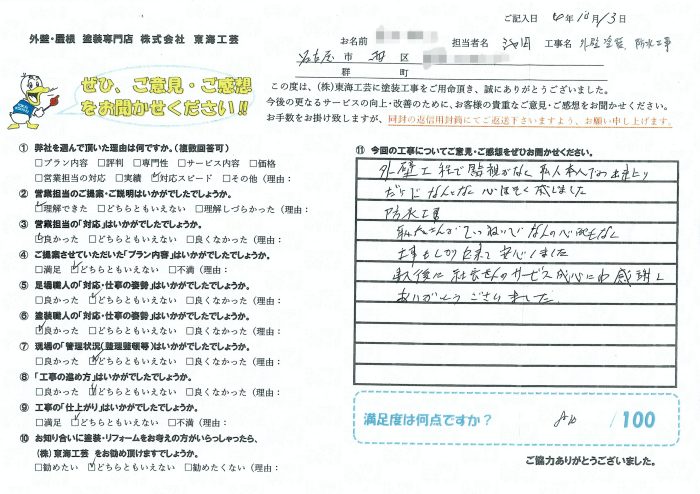 ご記入日 10月13日
外壁・屋根 塗装専門店 株式会社 東海工芸
お名前 担当者名 工事名 外壁塗装、防水工事
名古屋市 区
郡 町
ぜひ、ご意見・ご感想
をお聞かせください!!
この度は、(株)東海工芸に塗装工事をご用命頂き、誠にありがとうございました。
今後の更なるサービスの向上・改善のために、お客様の貴重なご意見・ご感想をお聞かせください。
お手数をお掛け致しますが、同封の返信用封筒にてご返送下さいますよう、お願い申し上げます。
① 弊社を選んで頂いた理由は何ですか。(複数回答可)
□プラン内容 □評判 □専門性 □サービス内容 □価格
□営業担当の対応 □実績 □対応スピード □その他(理由:
② 営業担当のご提案・ご説明はいかがでしたでしょうか。
□理解できた □どちらともいえない □理解しづらかった(理由:
③ 営業担当の「対応」はいかがでしたでしょうか。
□良かった □どちらともいえない □良くなかった(理由:
④ ご提案させていただいた「プラン内容」はいかがでしたでしょうか。
□満足 □どちらともいえない □不満(理由:
⑤ 足場職人の「対応・仕事の姿勢」はいかがでしたでしょうか。
□良かった □どちらともいえない □良くなかった(理由:
⑥ 塗装職人の「対応・仕事の姿勢」はいかがでしたでしょうか。
□良かった □どちらともいえない □良くなかった(理由:
⑦ 現場の「管理状況(整理整頓等)はいかがでしたでしょうか。
□良かった □どちらともいえない □良くなかった(理由:
⑧ 「工事の進め方」はいかがでしたでしょうか。
□良かった □どちらともいえない □良くなかった(理由:
⑨ 工事の「仕上がり」はいかがでしたでしょうか。
□満足 □どちらともいえない □不満(理由:
⑩ お知り合いに塗装・リフォームをお考えの方がいらっしゃったら、
(株)東海工芸 をお勧め頂けますでしょうか。
□勧めたい □どちらともいえない □勧めたくない(理由:
⑪ 今回の工事についてご意見・ご感想をぜひお聞かせください。
外壁工程で監視がなく
だけになんとなく心ほそく感じました
防水工事
ていねいでなんの心配もなく
工事もしっかり出来て安心しました
最後に社長さんのサービス 感謝し
ありがとうございました。
満足度は何点ですか? /100
ご協力ありがとうございました。